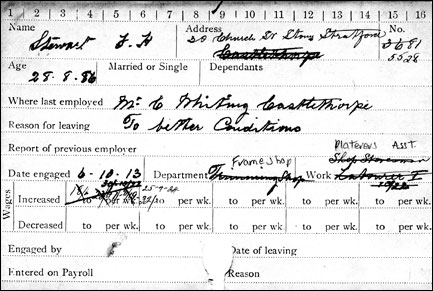 1 2 3 4 5 6 7 8 9 10 11 12 13 14 15 16
Name Address No.
Stewart F. H 20 Church St Stony Stratford 3681
Castlethorpe 5528
Age Married or Single Dependants
28.8.86
Where last employed Mr C Whiting Castlethorpe
Reason for leaving To better Conditions
Report of previous employer
Platerers Asst.
Frame shop Shop Storeman
Date engaged 6-10-13 Department Trimming Shop Work Labourer
25-9-22
Wages
Increased to per wk. to per wk. to per wk. to per wk. to per wk.
Decreased to per wk. to per wk. to per wk. to per wk. to per wk.
Engaged by Date of leaving
Entered on Payroll Reason